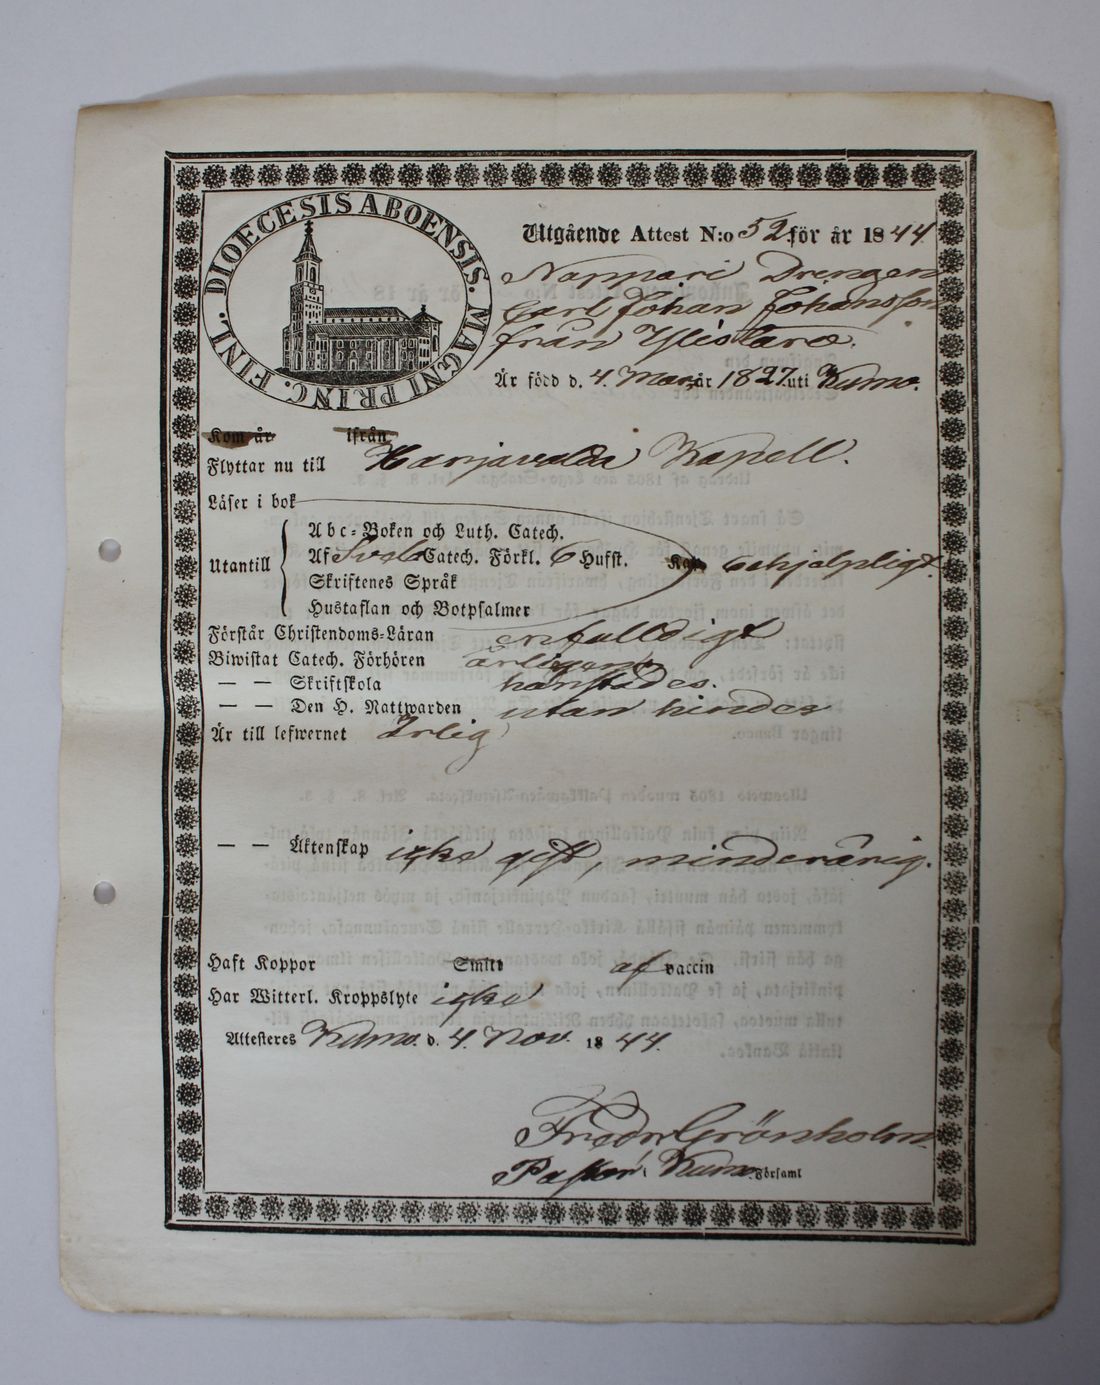 DIOECESIS ABOENSIS. MAGNI PRINC. FINL.
Utgående Attest N:o 52 för år 1844.
Nappari Drengen
Carl Johan Johansson
från Ylistaro.
Är född d. 4. Mars år 1827 uti Kumo.
Kom år ifrån
Flyttar nu till Harjavalda Kapell.
Läser i bok
Abc-Boken och Luth. Catech.
Utantill Af Sveb. Catech. Förkl. 6 Hufst. ohjelpligt.
Skriftenes Språk
Hustaflan och Botpsalmer
Förstår Christendoms-Läran enfalldigt
Biwistat Catech. Förhören årligen
— — Skriftskola härstädes.
— — Den H. Nattwarden utan hinder
Är till lefwernet Ärlig
— — Äktenskap icke gift, minderårig.
Haft Koppor Smitt af vaccin
Har Witterl. Kroppslyte icke
Attesteres Kumo. d. 4. Nov. 1844.
Fredr Grönholm
Pastor i Kumo. Församl